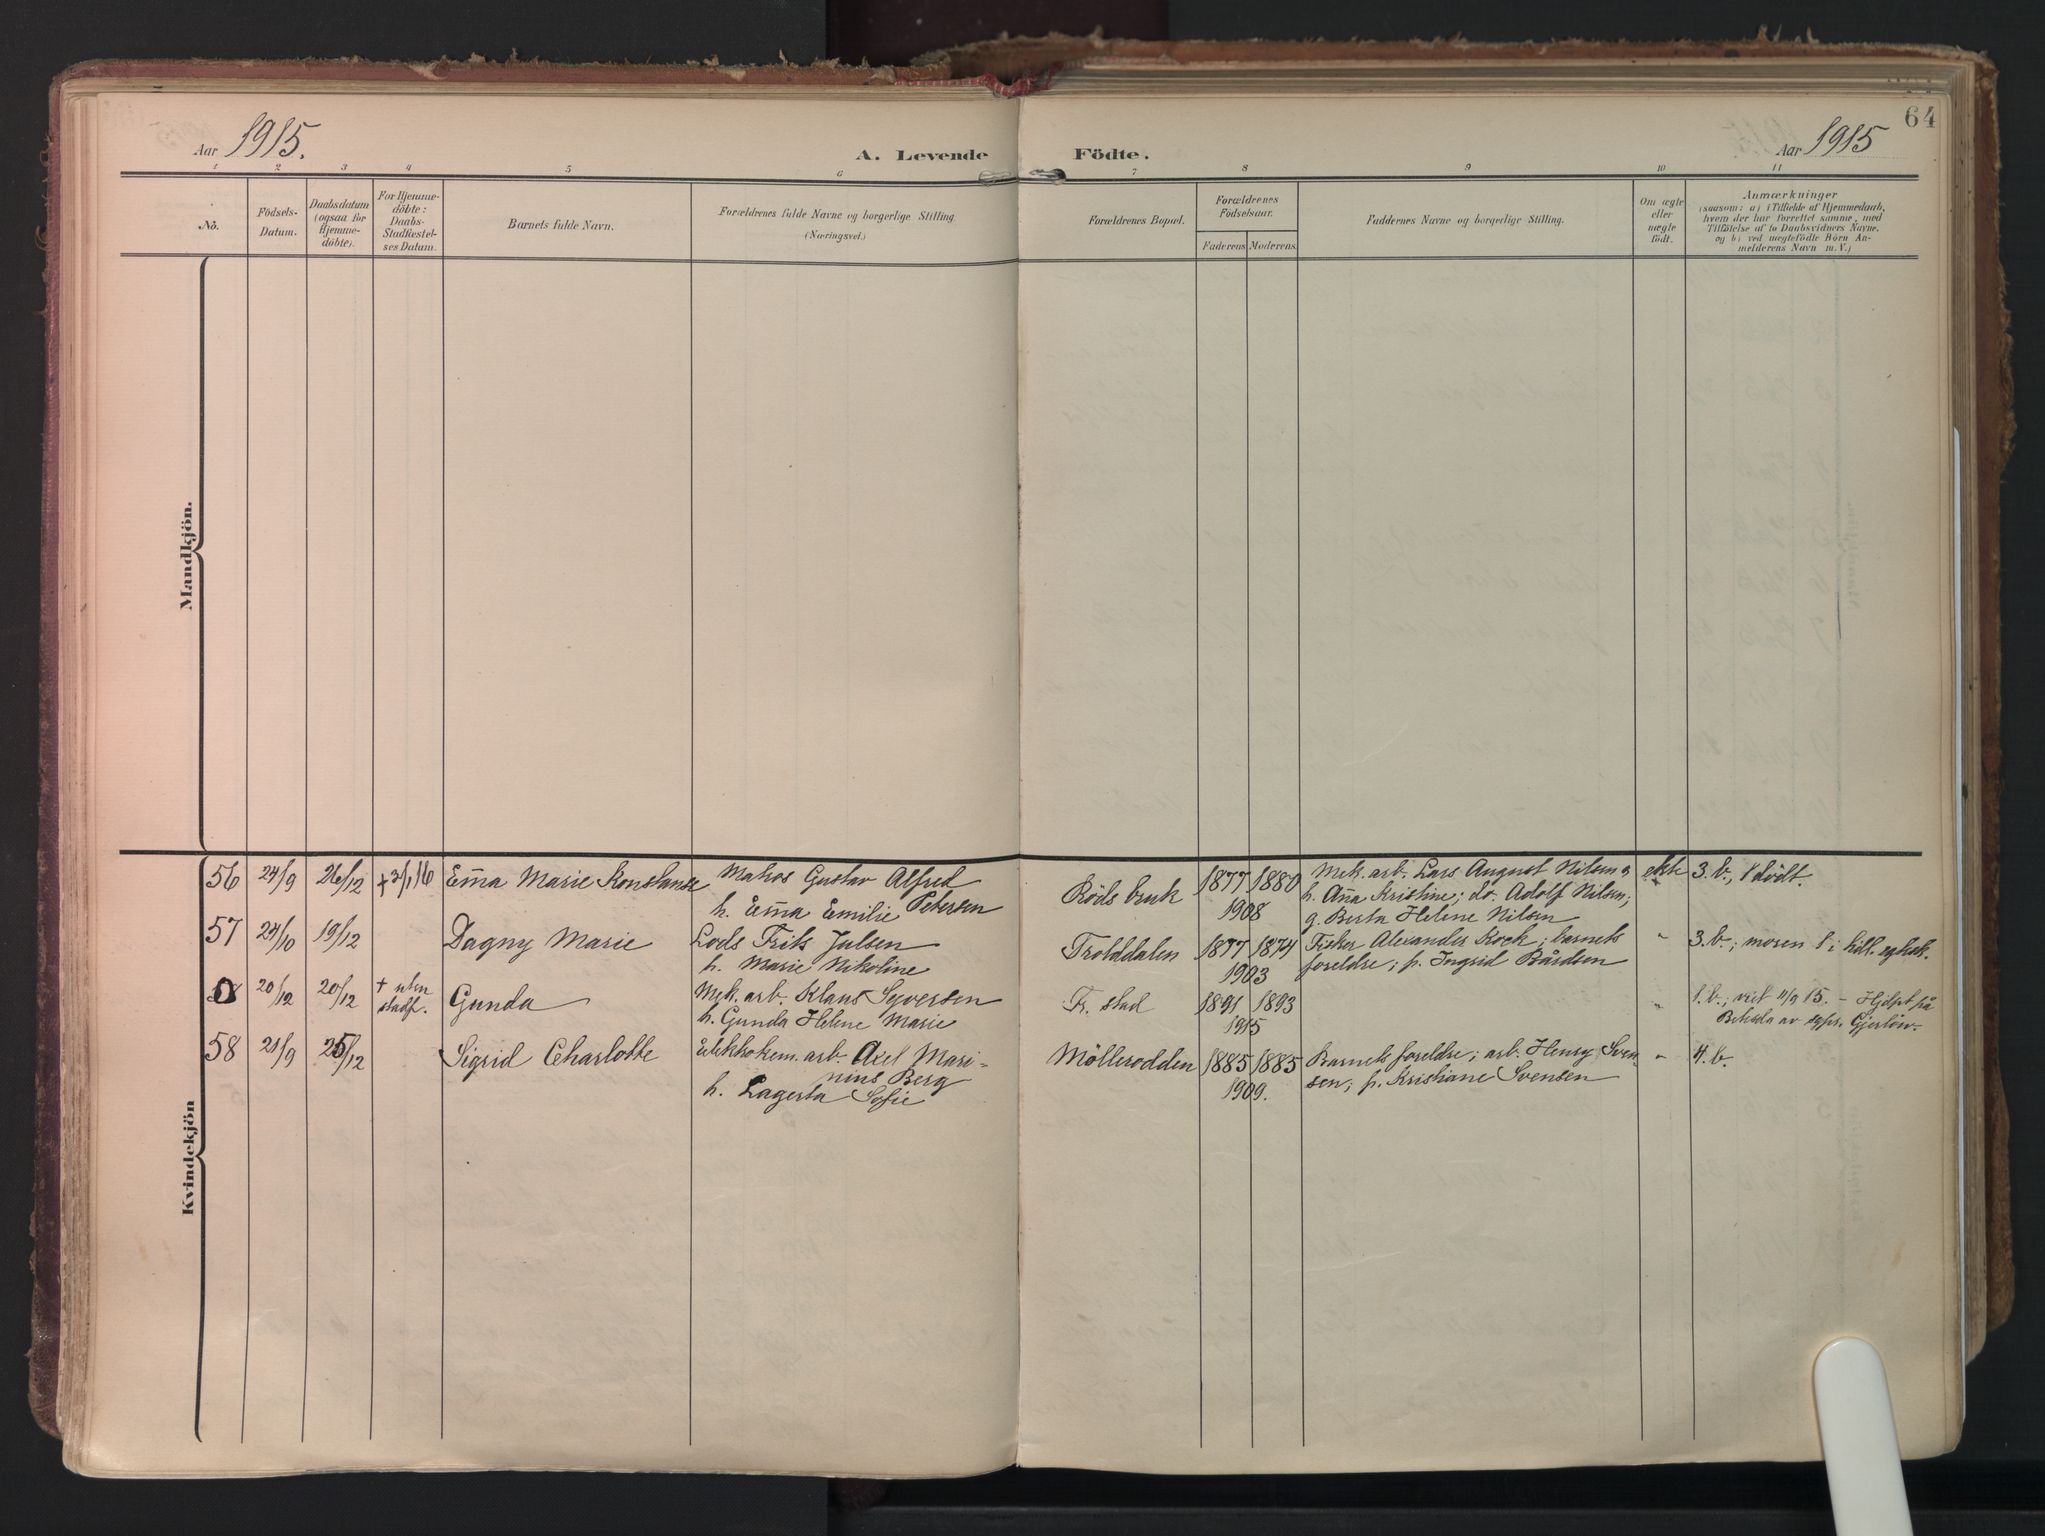 64
Aar 1915.
A. Levende Födte.
Aar 1915
1 2 3 4 5 6 7 8 9 10 11
No.
Födsels-
Datum.
Daabsdatum
(ogsaa for
Hjemme-
döbte).
For Hjemme-
döbte:
Daabs-
Stadfæstel-
ses Datum.
Barnets fulde Navn.
Forældrenes fulde Navne og borgerlige Stilling.
(Næringsvei.)
Forældrenes Bopæl.
Forældrenes
Födselsaar.
Faderens. Moderens.
Faddernes Navne og borgerlige Stilling.
Om ægte
eller
uægte
födt.
Anmærkninger
(saasom: a) i Tilfælde af Hjemmedaab,
hvem der har forrettet samme, med
Tilföielse af to Daabsvidners Navne,
og b) ved uægtefödte Börn An-
melderens Navn m. V.)
Mandkjön.
Kvindekjön
56 24/9 26/12 + 3/1 16 Emma Marie Konstanse Matros Gustav Alfred
h. Emma Emilie Petersen
Röds bruk 1877 1880
1908
Mek. arb. Lars August Nilsen og
h. Anna Kristine; do. Adolf Nilsen;
g. Berta Helene Nilsen
ekte 3. b., 1 dödt.
57 24/10 19/12 Dagny Marie Lods Frits Julsen
h. Marie Nikoline
Trolddalen 1877 1874
1903
Fisker Alexander Kock; barnets
foreldre; p. Ingrid Bårdsen
" 3. b.; moren i
0 20/12 20/12 + uten
stadf.
Gunda Mek. arb. Klaus Syversen
h. Gunda Helene Marie
Fr. stad 1891 1893
1915
" 1. b.; viet 11/9 15. - Hjdpt på
Betesda av sypr. Gjerlöw.
58 21/9 25/12 Sigrid Charlotte Elektrokem. arb. Axel Mari-
nius Berg
h. Lagerta Sofie
Möllerodden 1885 1885
1909.
Barnets foreldre; arb. Henry Sven-
sen; p. Kristiane Svensen
" 4. b.